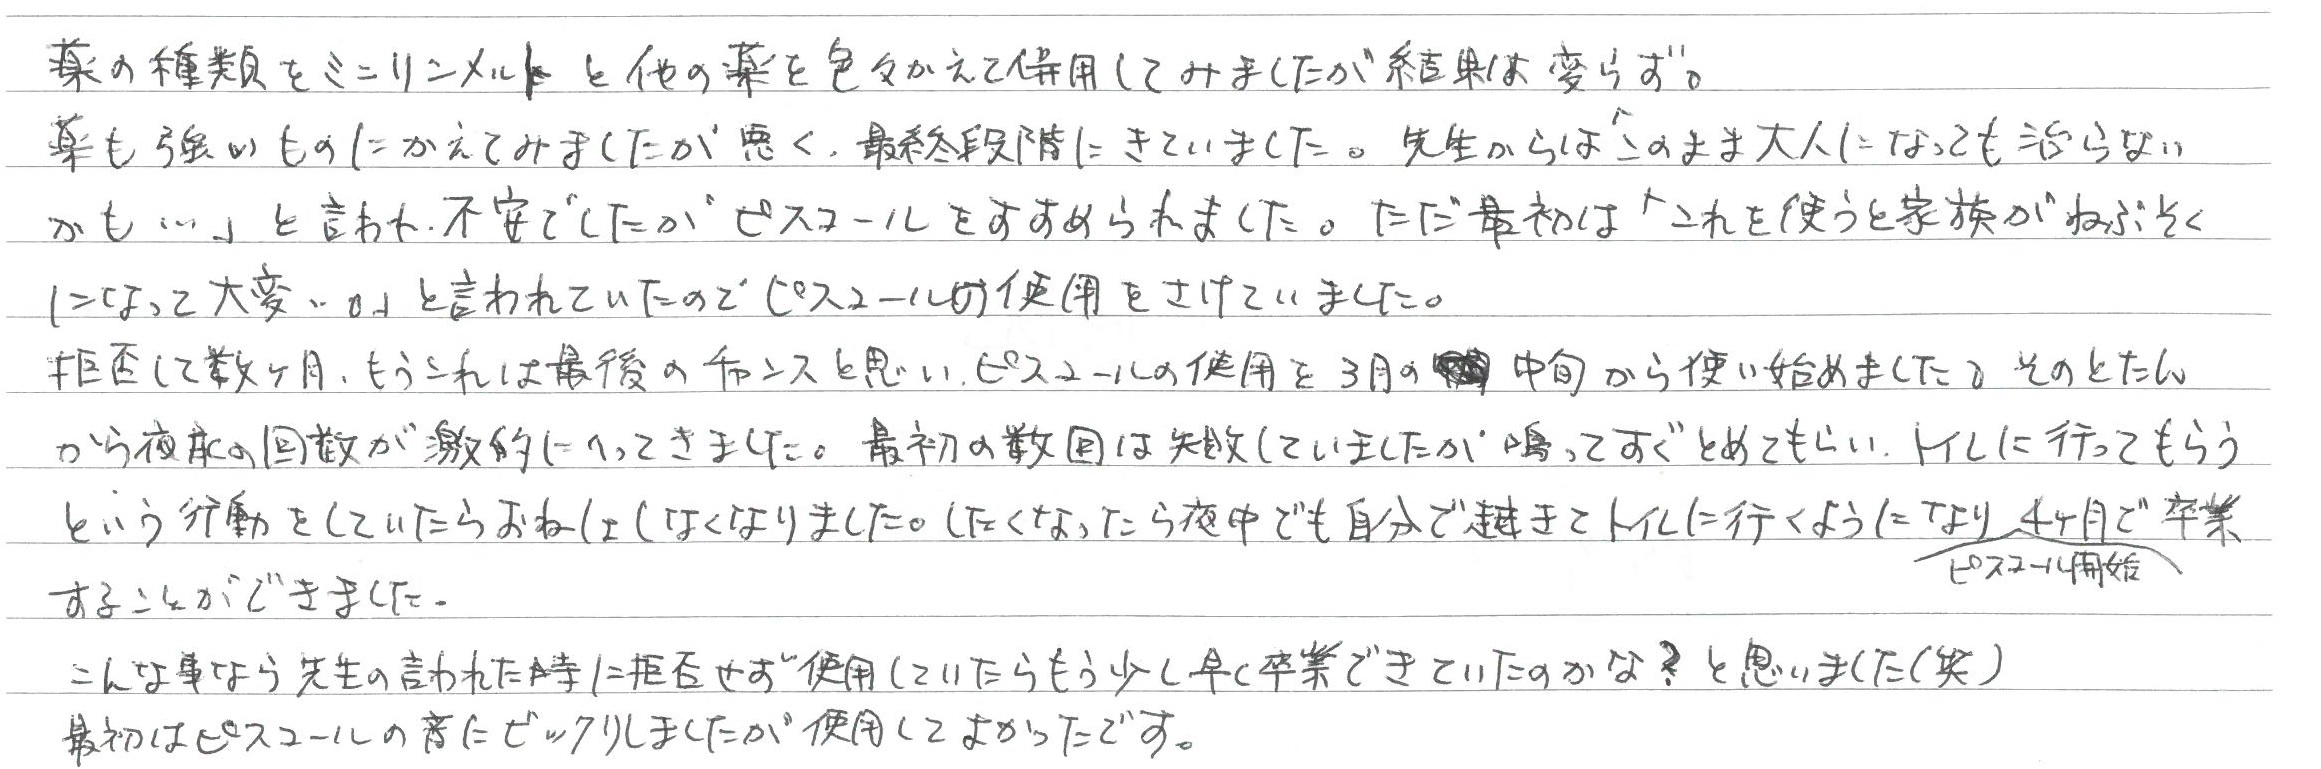 薬の種類をミニリンメルトと他の薬を色々かえて併用してみましたが結果は変らず。
薬も強いものにかえてみましたが悪く、最終段階にきていました。先生からは「このまま大人になっても治らない
かも…」と言われ、不安でしたがピスコールをすすめられました。ただ最初は「これを使うと家族がねぶそく
になって大変…。」と言われていたのでピスコールの使用をさけていました。
拒否して数ヶ月、もうこれは最後のチャンスと思い、ピスコールの使用を3月の中旬から使い始めました。そのとたん
から夜尿の回数が激的にへってきました。最初の数回は失敗していましたが鳴ってすぐとめてもらい、トイレに行ってもらう
という行動をしていたらおねしょしなくなりました。したくなったら夜中でも自分で起きてトイレに行くようになり 4ヶ月で卒業
ピスコール開始
することができました。
こんな事なら先生の言われた時に拒否せず使用していたらもう少し早く卒業できていたのかな?と思いました(笑)
最初はピスコールの音にビックリしましたが使用してよかったです。